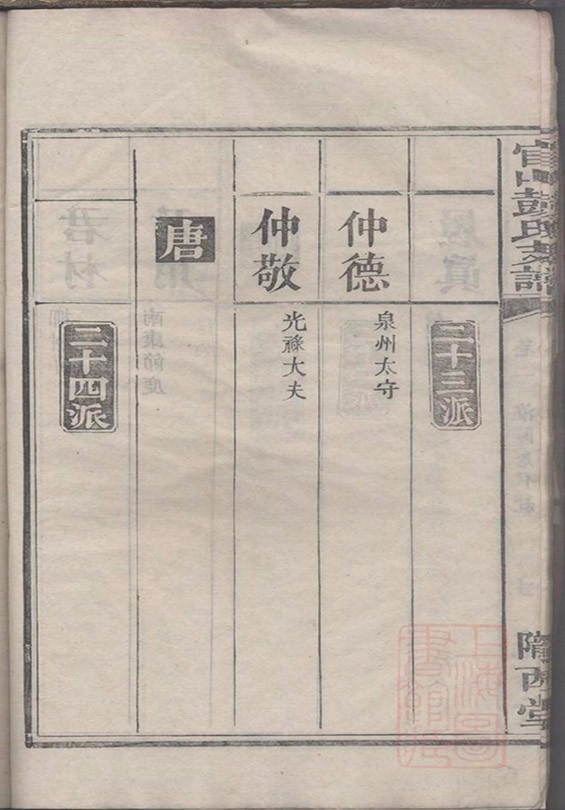 官山彭氏族譜
隴西堂
二十三派
仲德
泉州太守
仲敬
光祿大夫
唐
二十四派
上海圖
書館藏